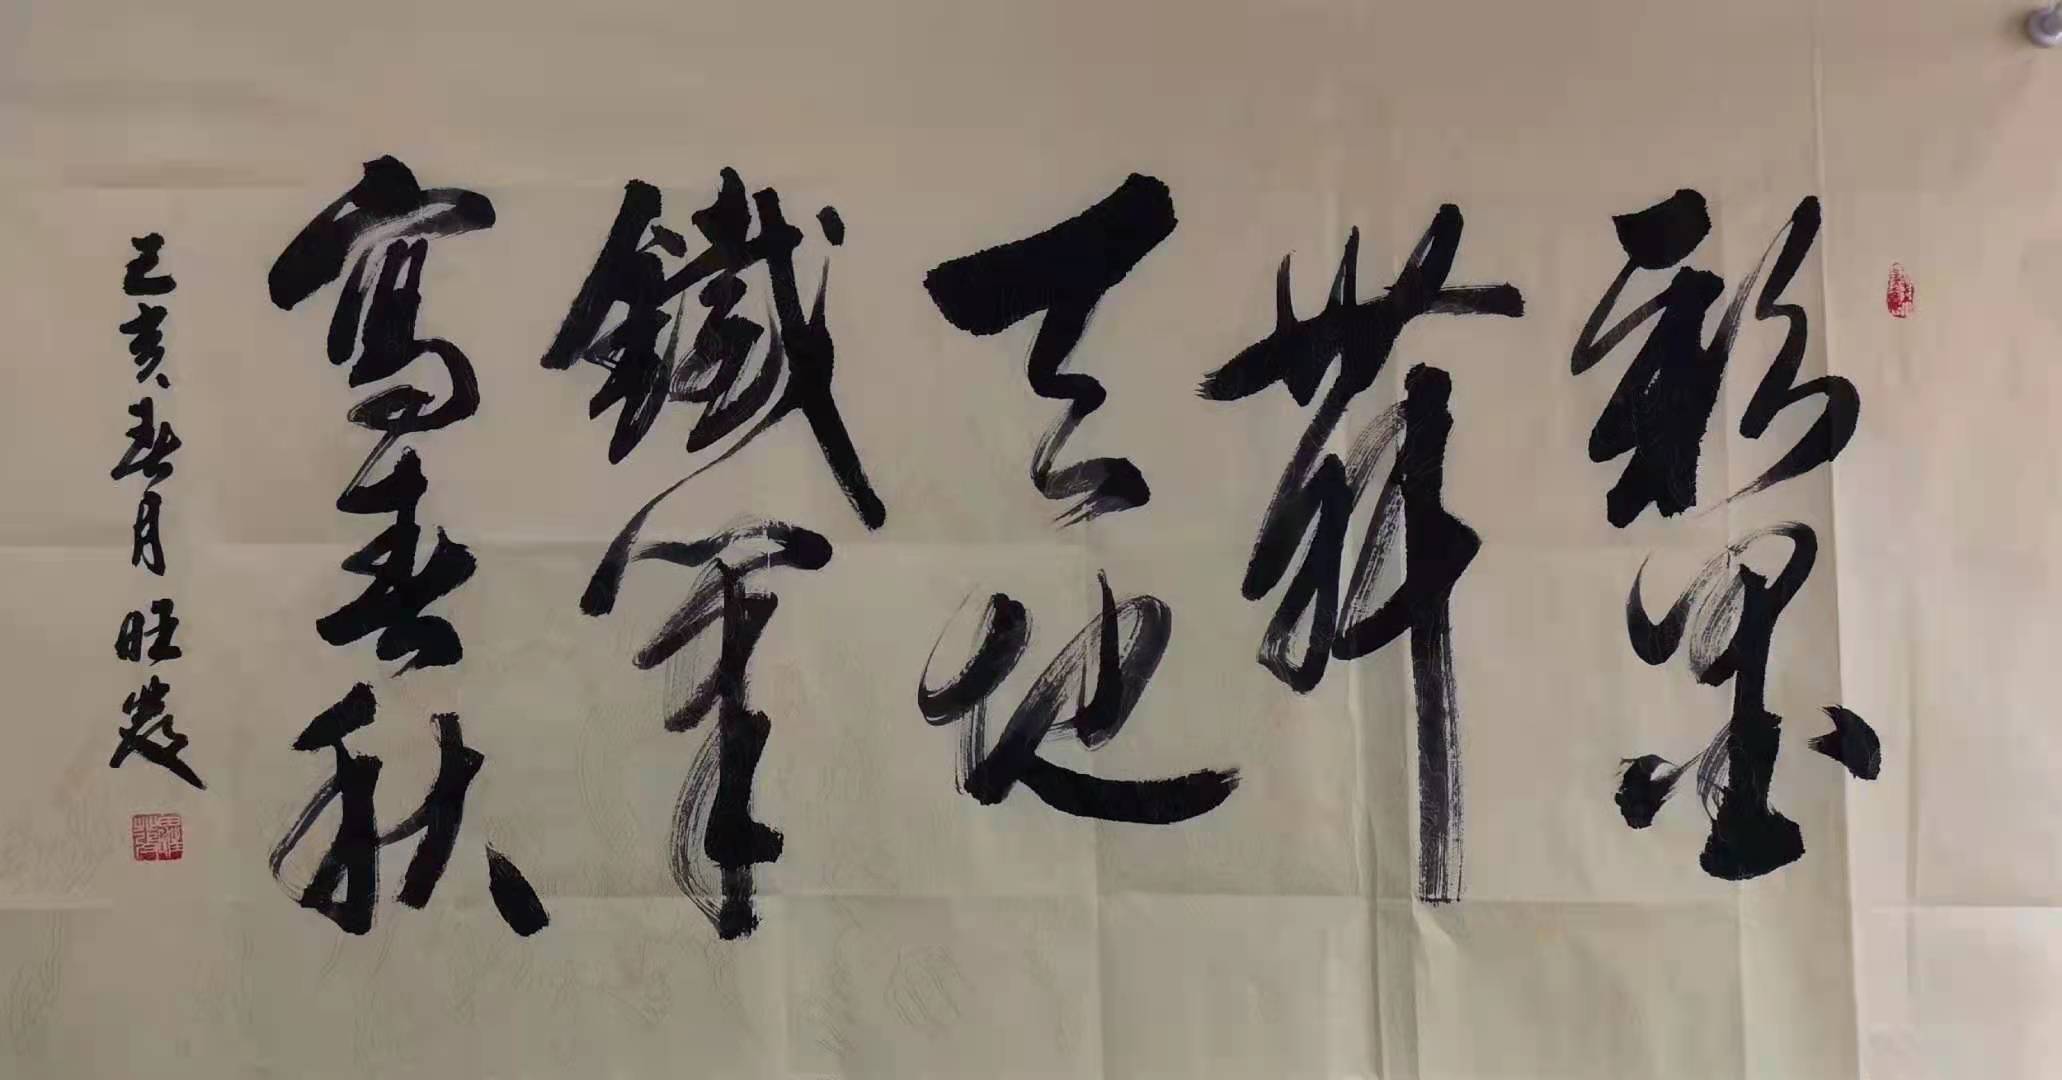 彩墨
舞
天地
鐵筆
寫春秋
己亥春月 旺